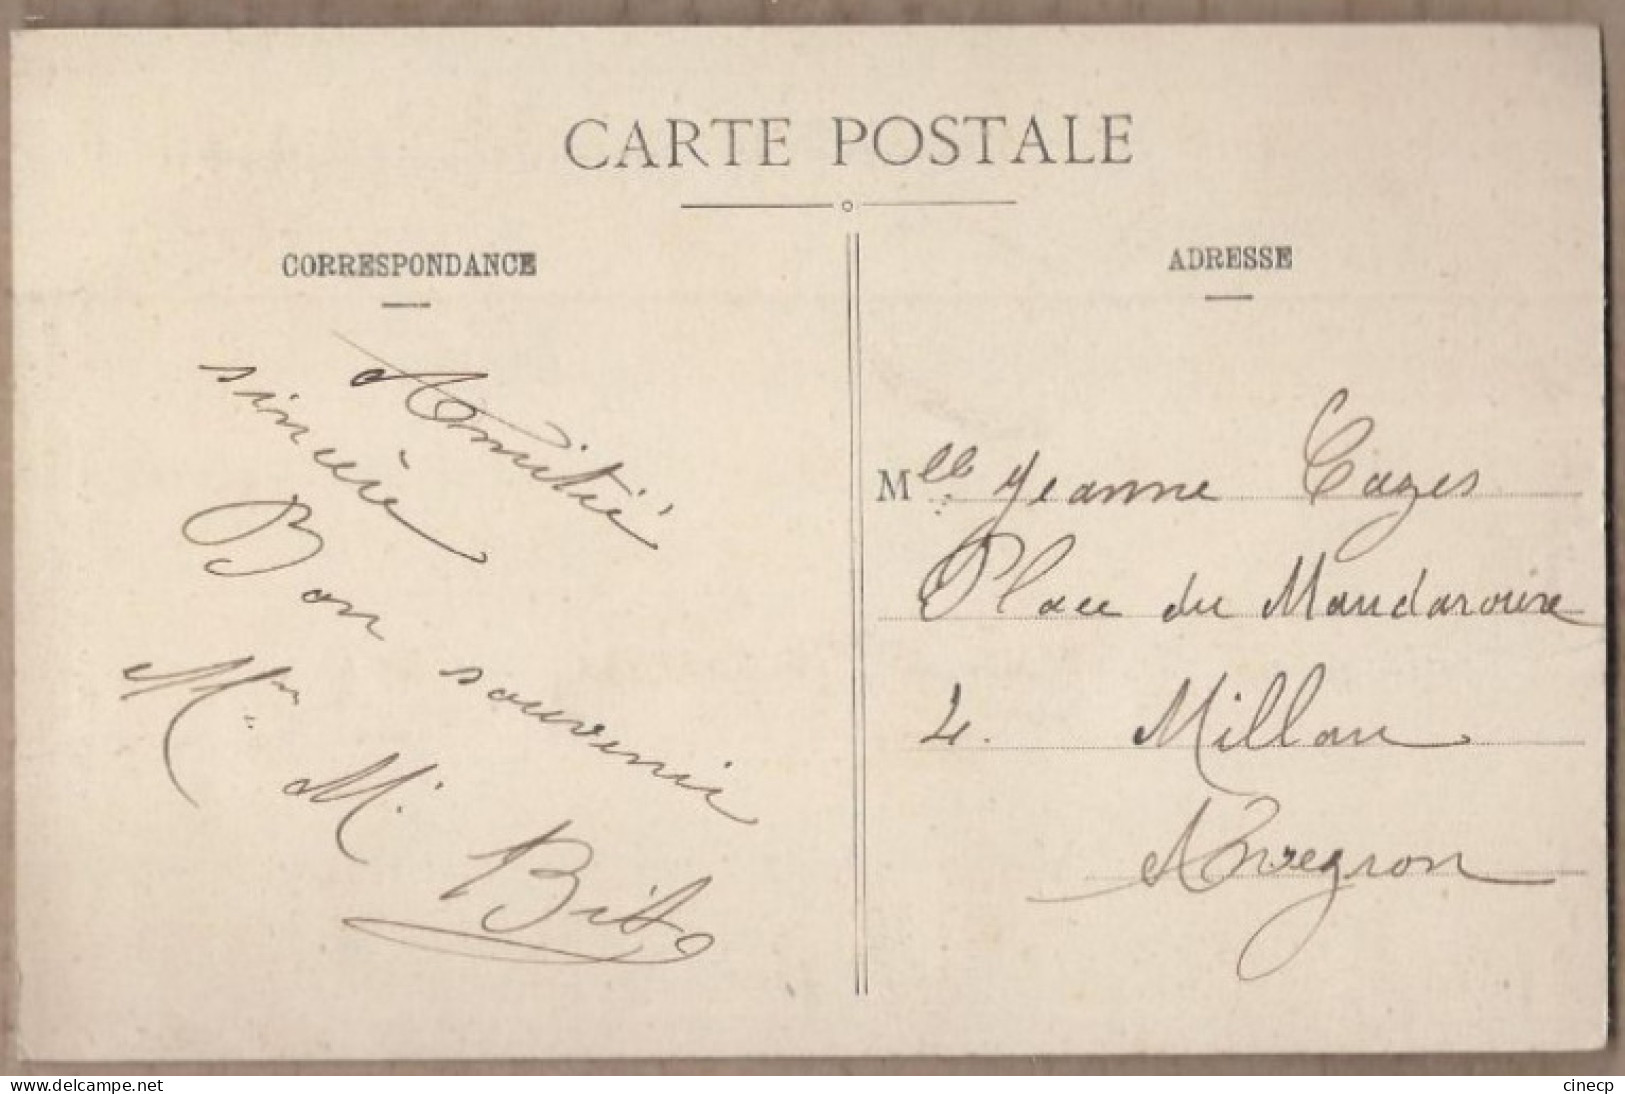 CARTE POSTALE
CORRESPONDANCE
ADRESSE
Amitié
sincère
Bon souvenir
M. Bit
Mlle Jeanne Cazes
Place du Mandarous
4. Millau
Aveyron
www.delcampe.net
cinecp